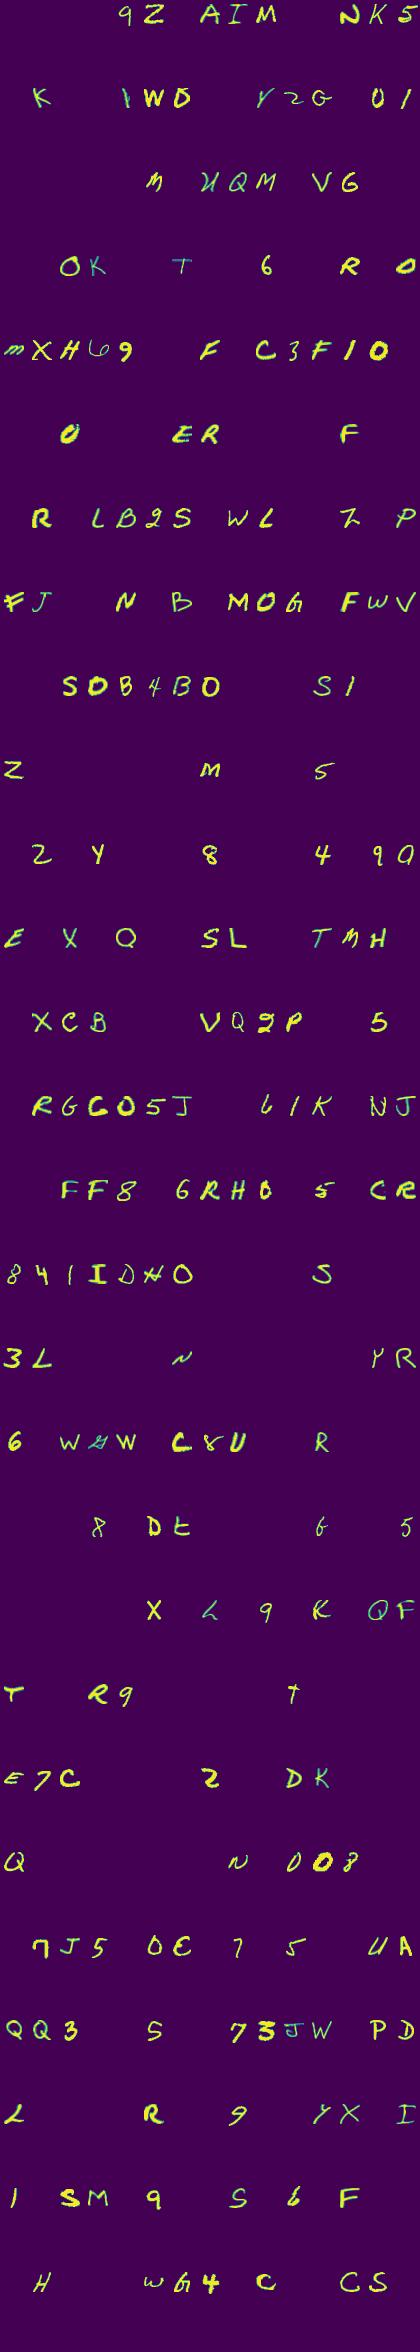 9Z AIM NK5
K 1WD Y2G 01
M UQM VG
OK T 6 R O
MXH69 F C3F10
0 ER F
R LB2S WL Z P
FJ N B MOG FWV
SOB4BO S1
Z M 5
2 Y 8 4 9Q
E X Q SL TMH
XCB VQ2P 5
RGCO5J 61K NJ
FF8 6RHO 5 CR
841IDHO S
3L N YR
6 W W C8U R
8 DE 6 5
X L 9 K QF
T R9 T
E7C 2 DK
Q N 008
7J5 OE 7 5 UA
QQ3 S 73JW PD
L R 9 YX I
1 SM 9 S 6 F
H WG4 C CS